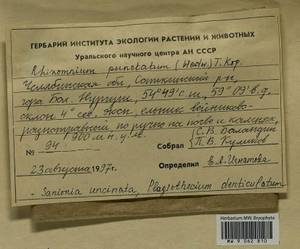 ГЕРБАРИЙ ИНСТИТУТА ЭКОЛОГИИ РАСТЕНИЙ И ЖИВОТНЫХ
Уральского научного центра АН СССР
Rhizomnium punctatum (Hedw.) T. Kop.
Челябинская обл, Саткинский р-н,
гора Бол. Нургуш, 54°49' с.ш., 59°09' в.д.
склон 4° сев. эксп, ельник вейниково-
разнотравный по ручью на почве и камнях,
900 м н. у. м.
№ 94
Собрал С.В. Баландин
П.В. Куликов
23 августа 1997 г.
Определил Е.А. Игнатова
- Sanionia uncinata, Plagiothecium denticulatum
Herbarium MW, Bryophyta
MW 9 062 810